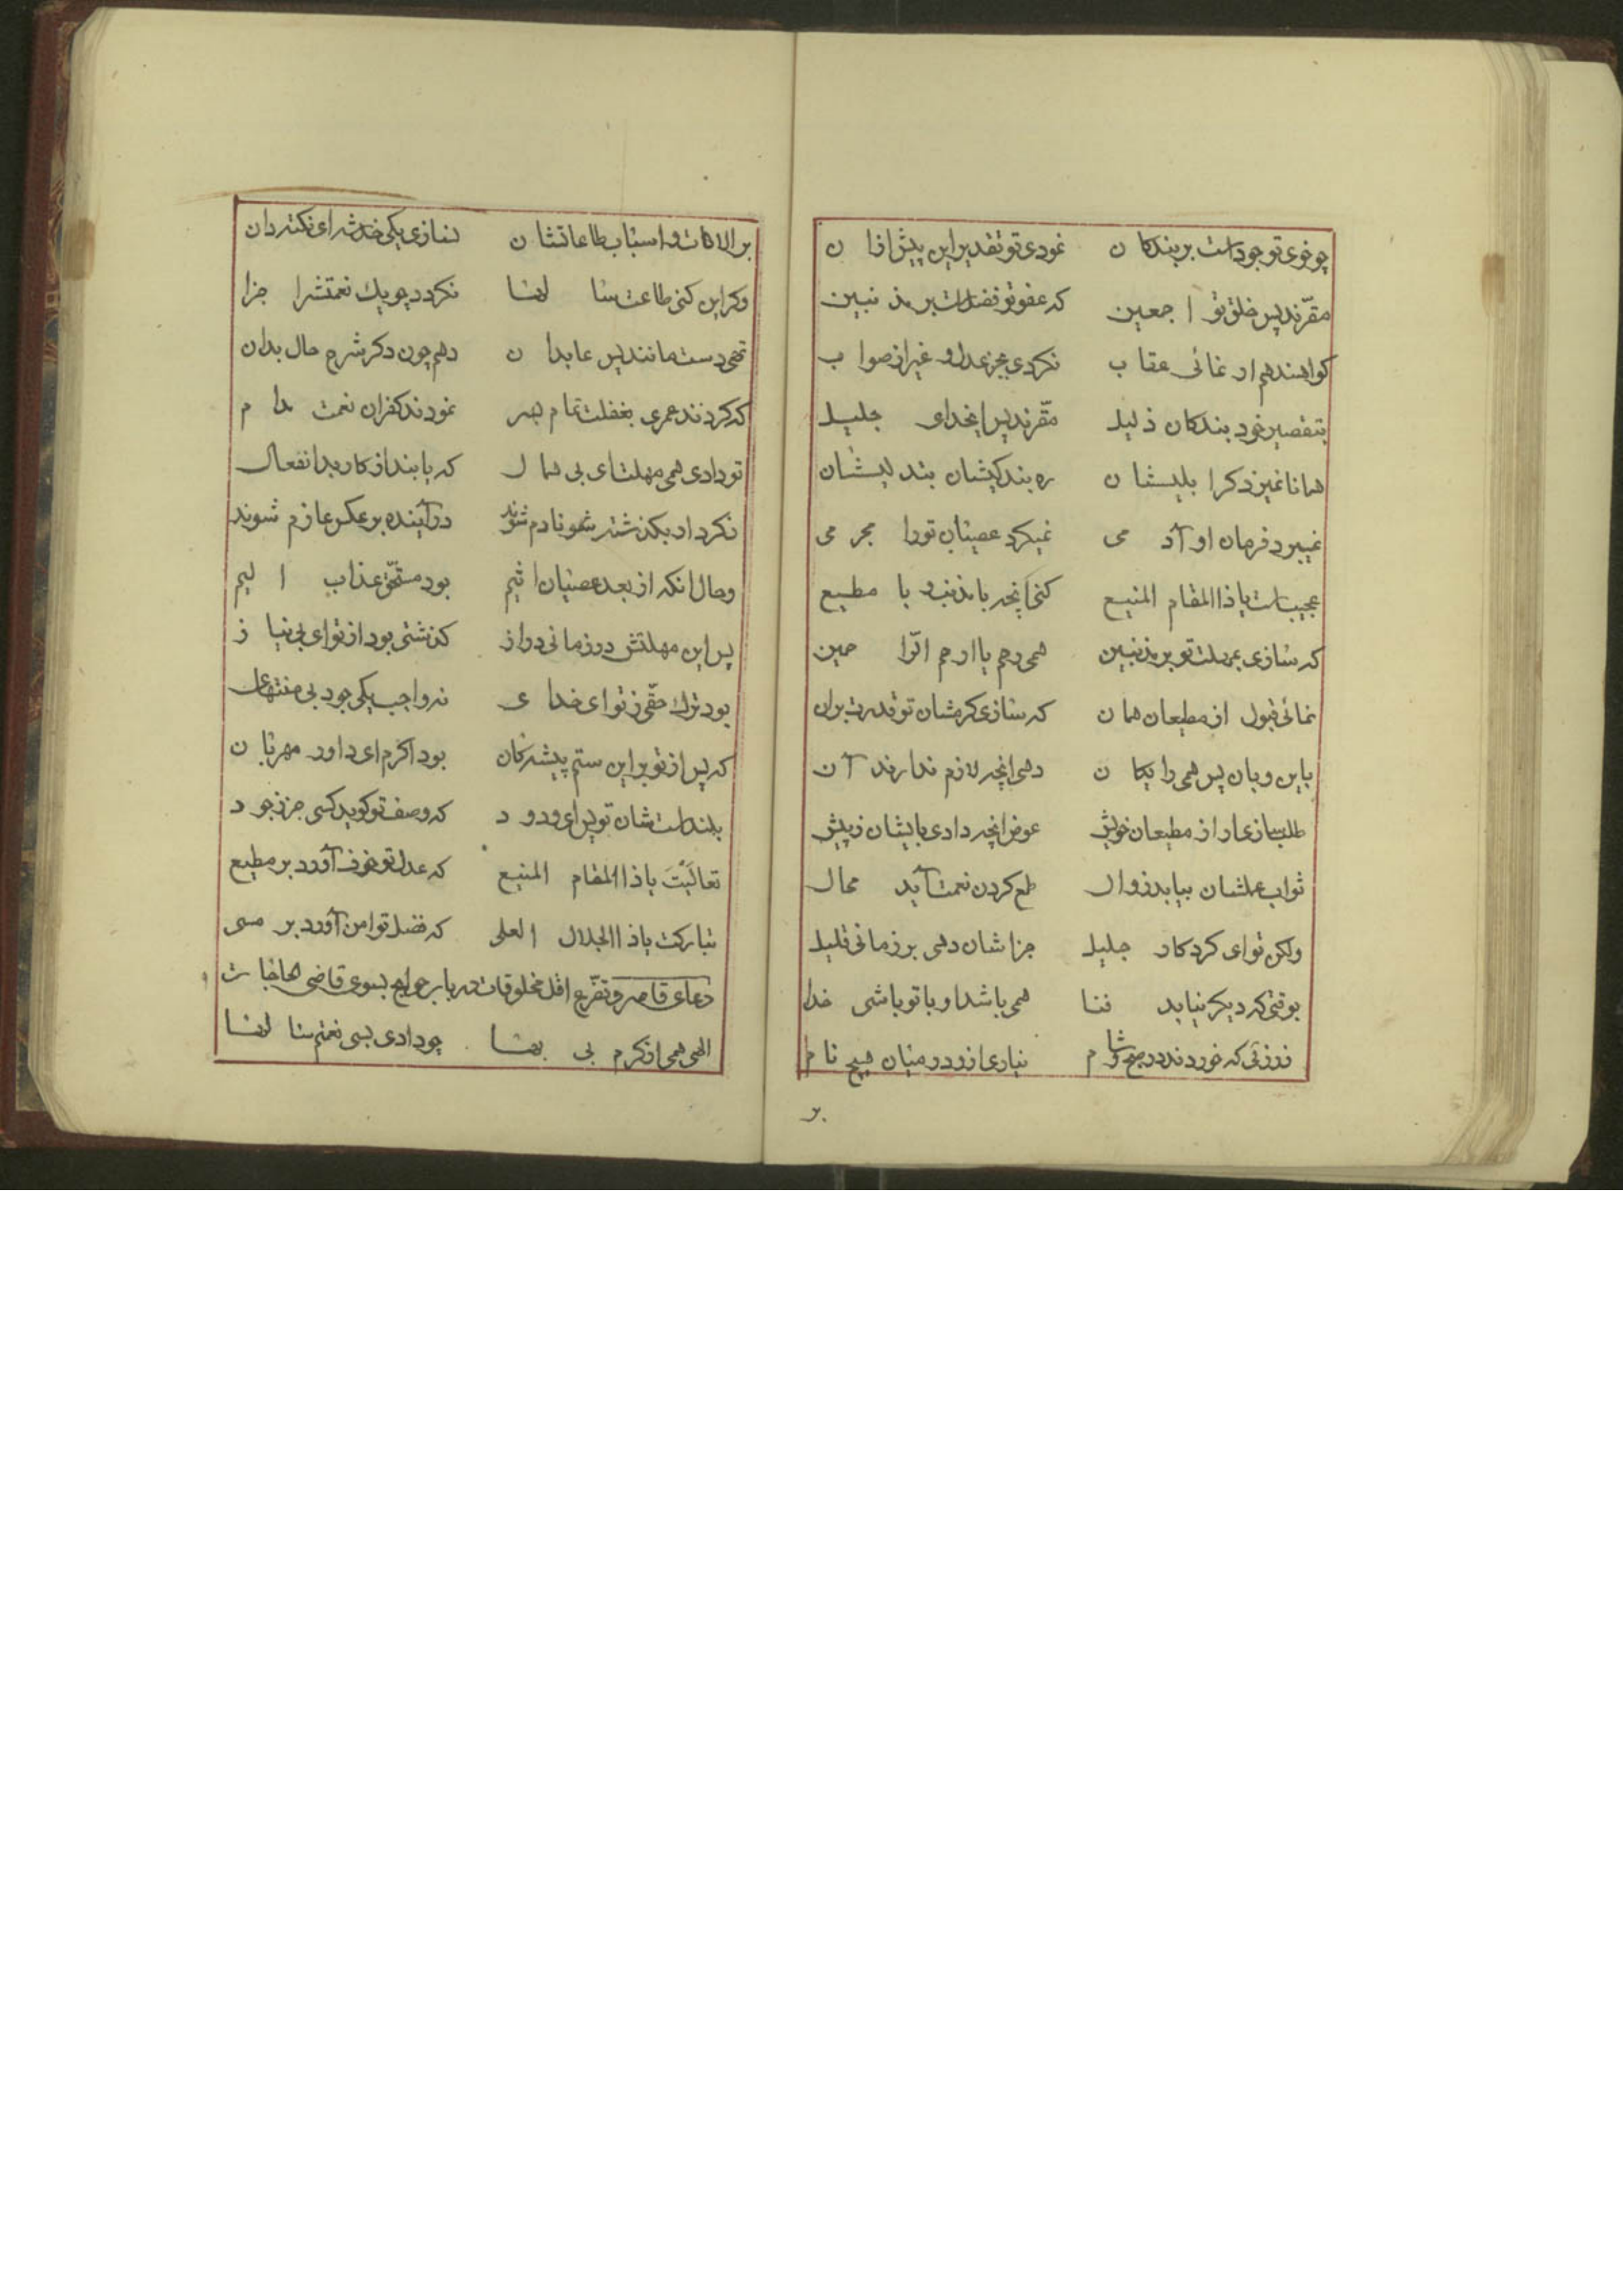 چو خوی تو جود است بر بندکان نمودی تو تقدیر این پیش ازان
مقرّند پس خلق تو اجمعین که عفو تو فضل است بر مذنبین
کواهند هم ار نمائی عقاب نکردی بجز عدل و غیر از صواب
بتقصیر خود بندکان ذلیل مقرّند پس ایخدای جلیل
همانا غیر ذکر ابلیشان ره بندکیشان بتدلیسشان
نمیبرد فرمان او آدمی نمیکرد عصیان تو را مجرمی
عجیب است یا ذا المقام المنیع کنی آنچه با مذنب و با مطیع
که سازی بمهلت تو بر مذنبین همی رحم یا ارحم الرّاحمین
نمائی قبول از مطیعان همان که سازی کرمشان تو قدرت بران
باین و بان پس همی رایکان دهی آنچه لازم ندارند آن
طلب سازی ار از مطیعان خویش عوض آنچه دادی بایشان ز پیش
ثواب عملشان بیابد زوال طمع کردن نعمت آید محال
ولکن تو ای کردکار جلیل جزاشان دهی بر زمانی قلیل
بوقتی که دیکر نیابد فنا همی باشد او با تو باشی خدا
ز رزقی که خوردند در صبح و شام نیاری ازو در میان هیچ نام
بر
بر الات و اسباب طاعاتشان نسازی یکی خدشه ای نکته دان
وکر این کنی طاعت سالها نکردد چو یک نعمتش را جزا
تهی دست مانند پس عابدان دهم چون دکر شرح حال بدان
که کردند عمری بغفلت تمام نمودند کفران نعمت مدام
تو دادی همی مهلت ای بی همال که یابند از کار بد انفعال
نکرد ار بکذشته شو نادم شوند در آینده بر عکس عازم شوند
و حال آنکه از بعد عصیان اثیم بود مستحقّ عذاب الیم
پس این مهلتش در زمانی دراز کذشتی بود از تو ای بی نیاز
بود ترک حقّی ز تو ای خدای نه واجب یکی جود بی منتهای
که پس از تو بر این ستم پیشه کان بود اکرم ای داور مهربان
بلند است شان تو پس ای ودود که وصف تو کوید کسی جز ز جود
تعالَیْتَ یا ذا المقام المنیع که عدل تو خوف آورد بر مطیع
تبارکت یا ذا الجلال العلی که فضل تو امن آورد بر مسی
دعای قاصر و تضرّع اقل مخلوقات در باب حوایج بسوی قاضی الحاجات
الهی همی از کرم بی بها چو دادی بسی نعمتم سالها